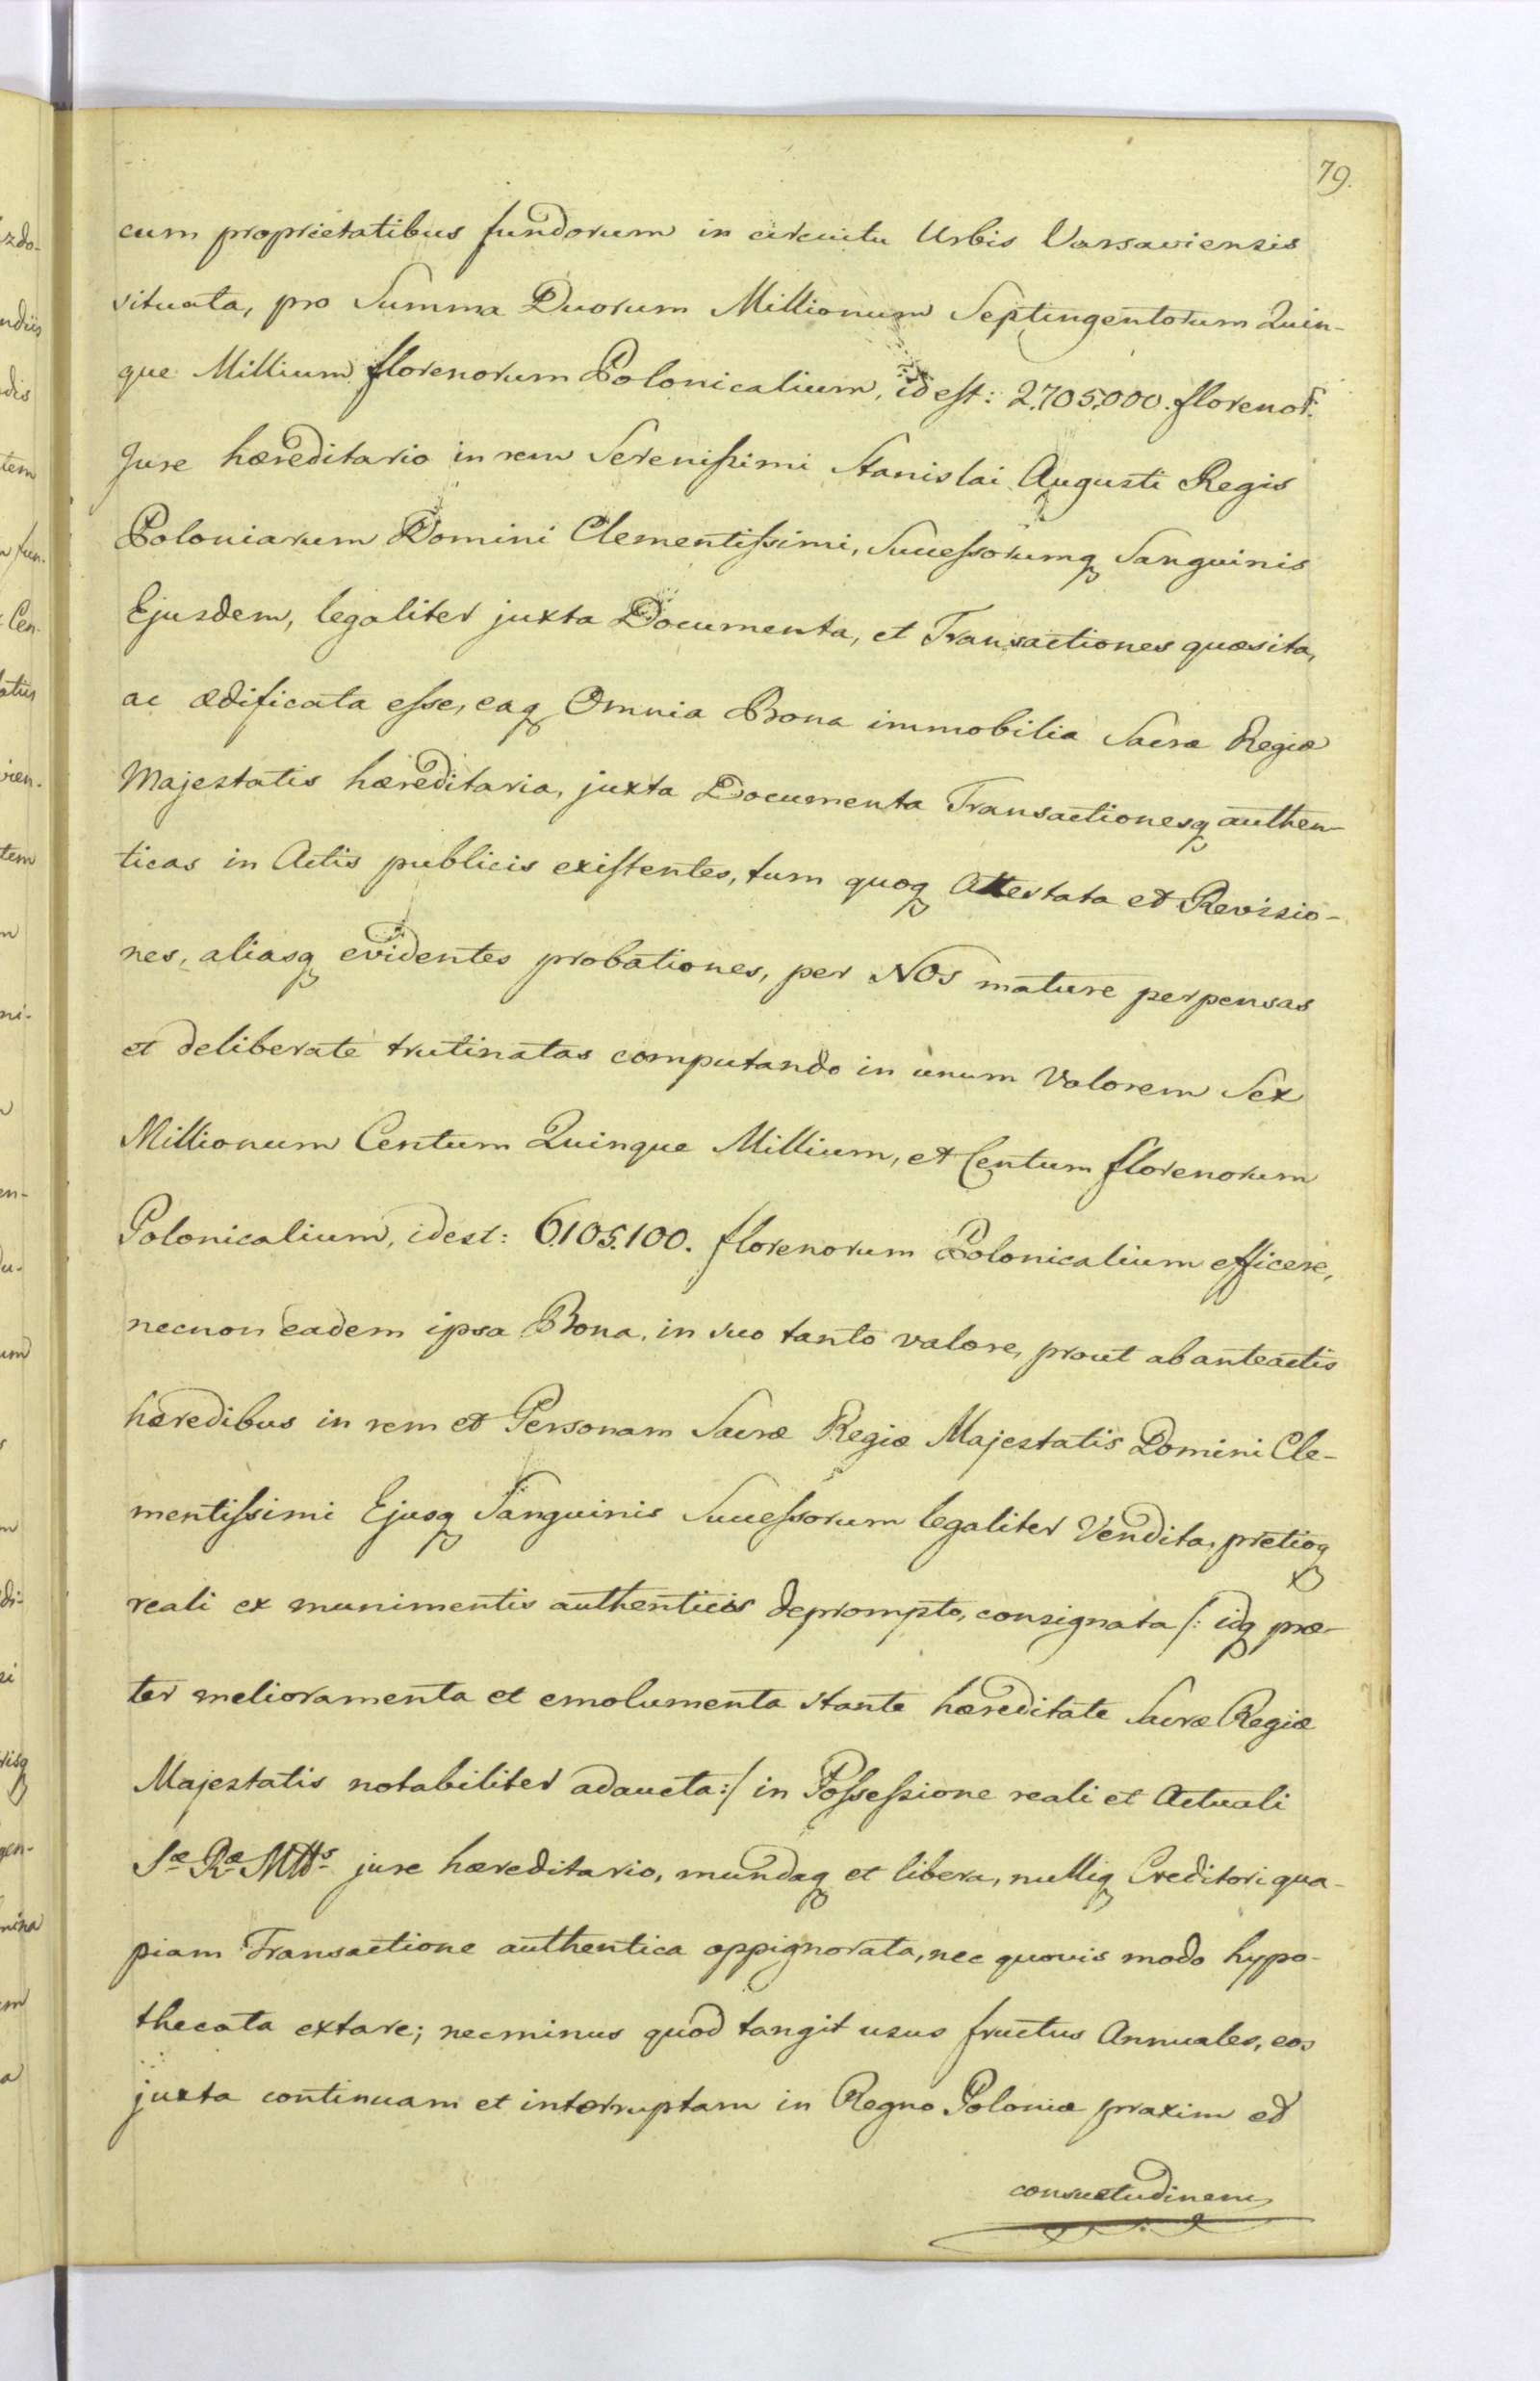 79.
cum proprietatibus fundorum in circuitu Urbis Varsaviensis
situata, pro Summa Duorum Millionum Septingentorum Quin-
que Millium florenorum Polonicalium, id est: 2,705,000. florenor.
Jure hæreditario in rem Serenissimi Stanislai Augusti Regis
Poloniarum Domini Clementissimi, Successorumq Sanguinis
Ejusdem, legaliter juxta Documenta, et Transactiones quæsita,
ac ædificata esse, eaq Omnia Bona immobilia Sacræ Regiæ
Majestatis hæreditaria, juxta Documenta Transactionesq authen-
ticas in Actis publicis existentes, tum quoq Attestata et Revisio-
nes, aliasq evidentes probationes, per NOS mature perpensas
et deliberate trutinatas computando in unum Valorem Sex
Millionum Centum Quinque Millium, et Centum florenorum
Polonicalium, idest: 6,105,100. florenorum Polonicalium efficere,
necnon eadem ipsa Bona, in suo tanto valore, prout ab anteactis
hæredibus in rem et Personam Sacræ Regiæ Majestatis Domini Cle-
mentissimi Ejusq Sanguinis Successorum legaliter Vendita, pretioq
reali ex munimentis authenticis deprompto, consignata /: idq præ-
ter melioramenta et emolumenta stante hæreditate Sacræ Regiæ
Majestatis notabiliter adaucta:/ in Possessione reali et Actuali
Sæ Ræ Mttis jure hæreditario, mundaq et libera, nulliq Creditori qua-
piam Transactione authentica oppignorata, nec quovis modo hypo-
thecata extare; necminus quod tangit usus fructus Annuales, eos
juxta continuam et interruptam in Regno Poloniæ praxim et
consuetudinem